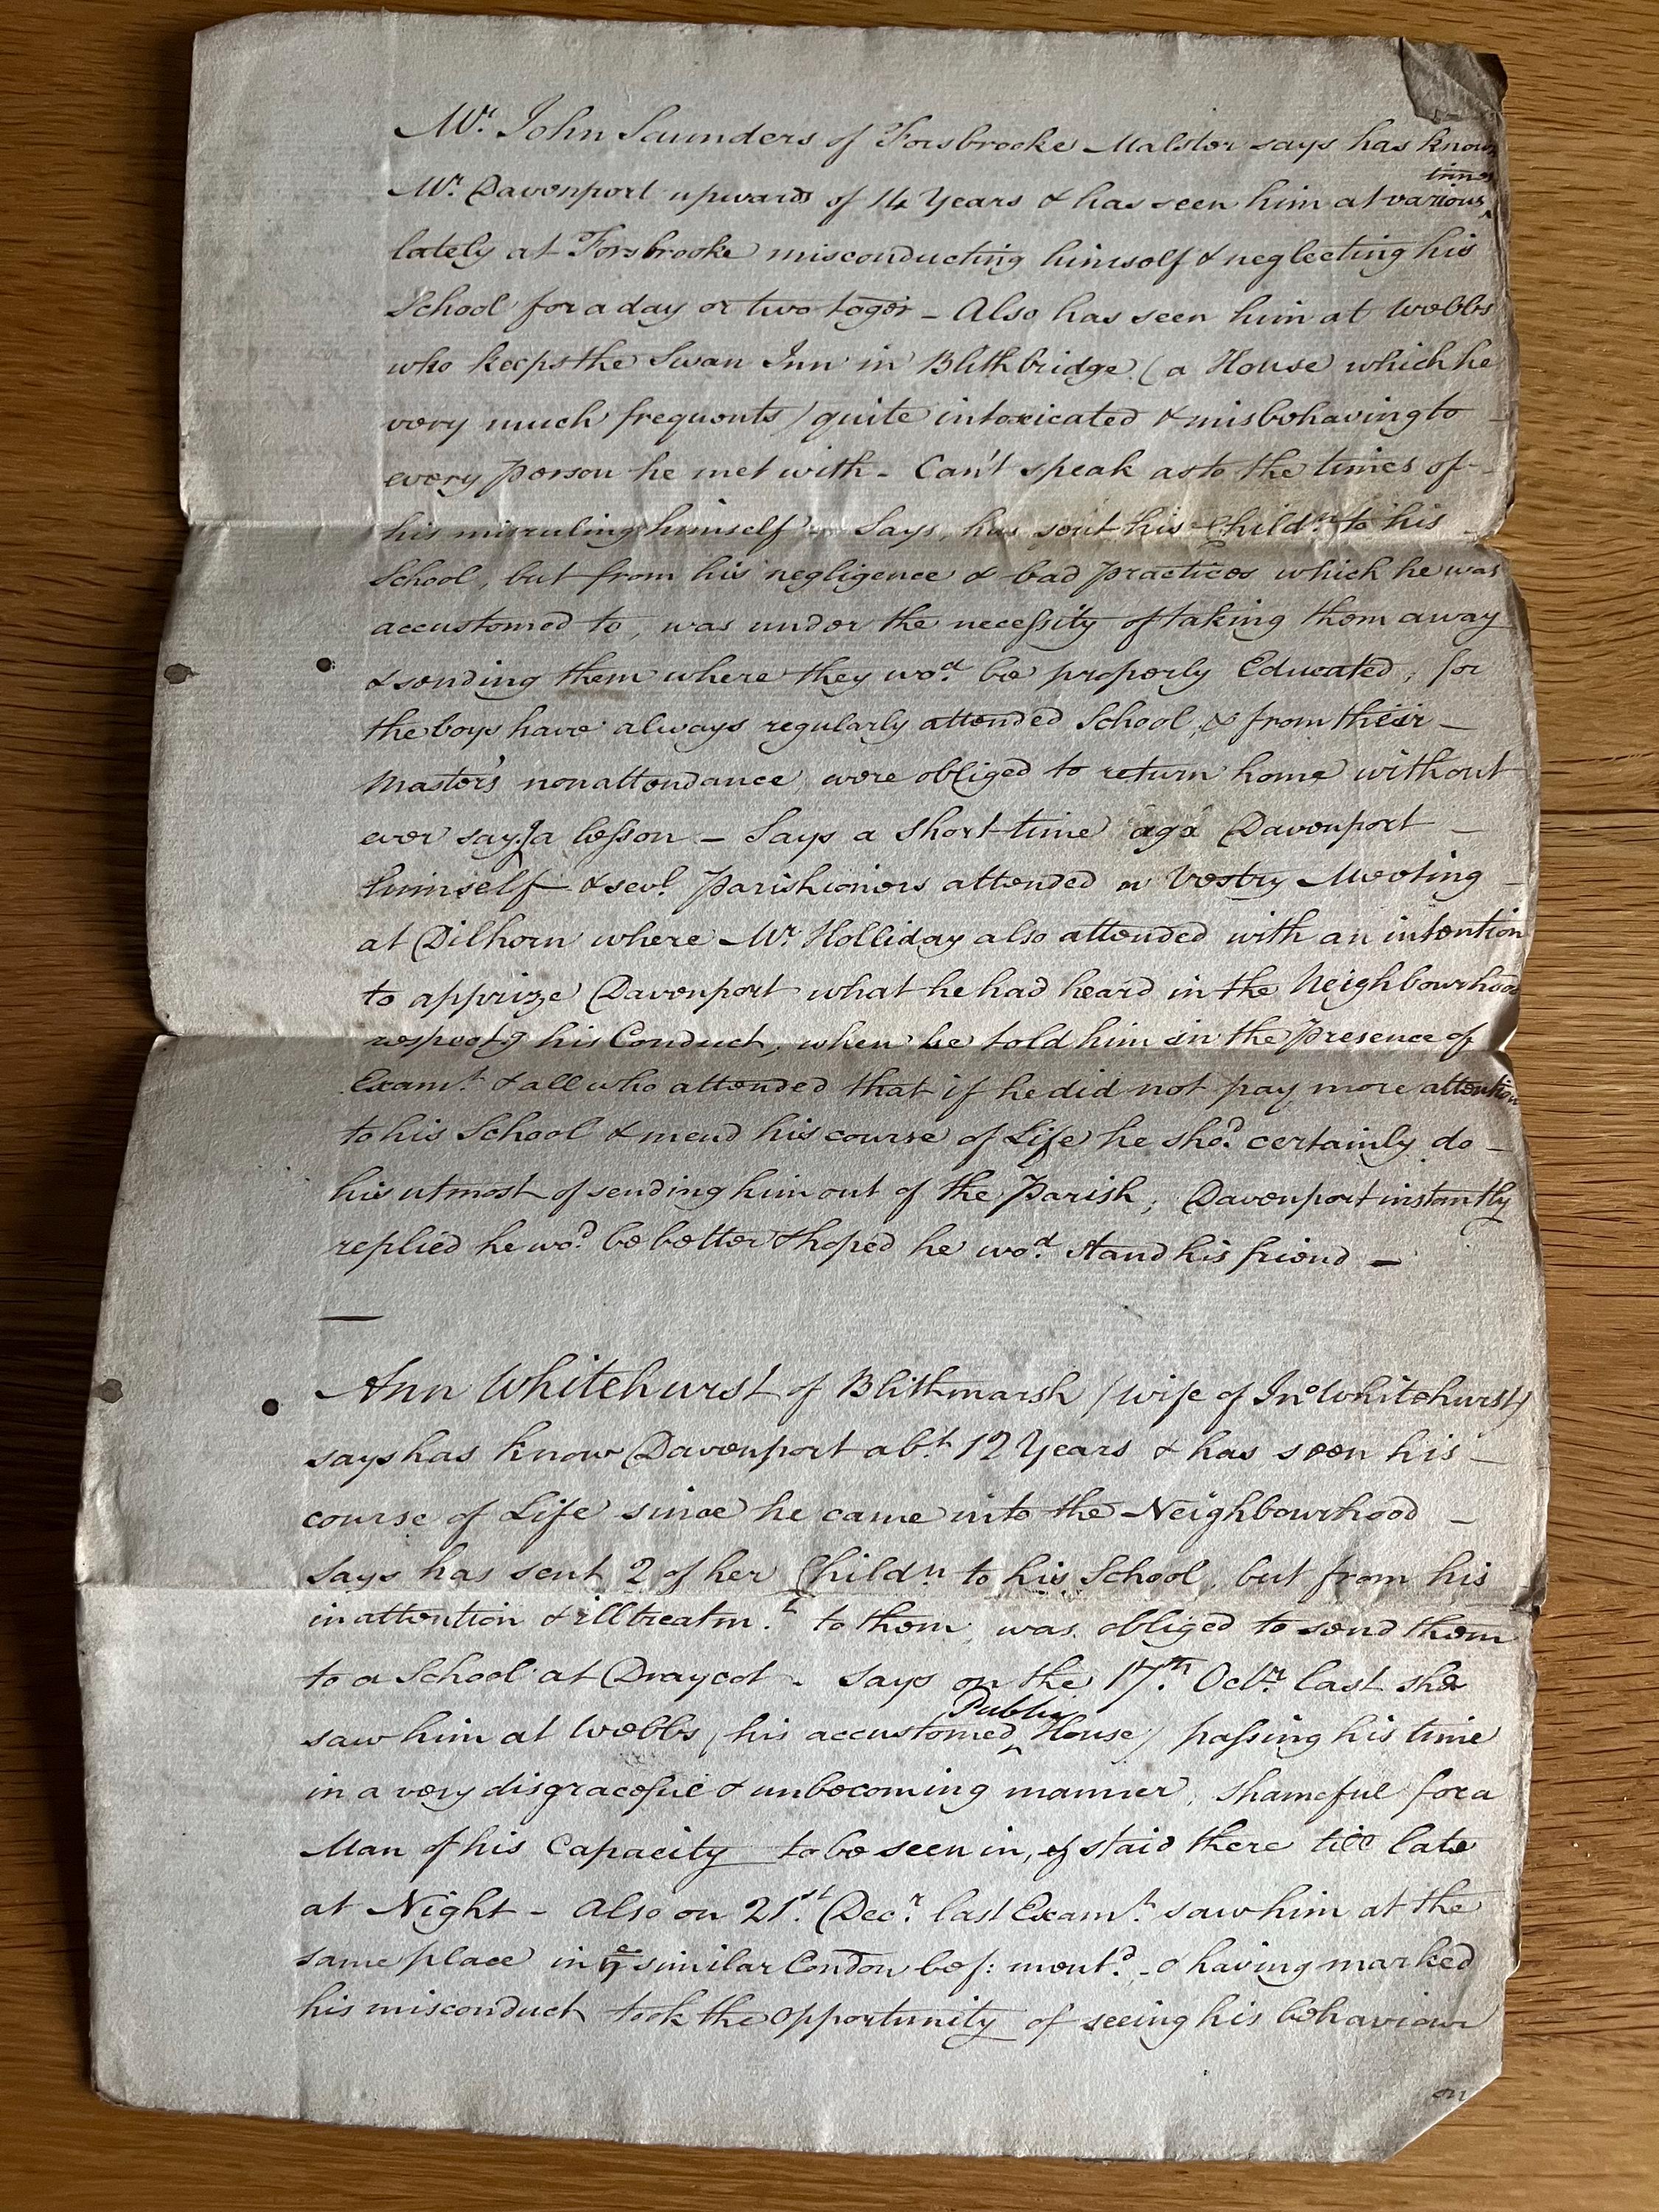 Mr. John Saunders of Forsbrooke Malster says has known
Mr. Davenport upwards of 14 Years & has seen him at various times
lately at Forsbrooke misconducting himself & neglecting his
School for a day or two togor - Also has seen him at Webbs
who keeps the Swan Inn in Blithbridge (a House which he
very much frequents) quite intoxicated & misbehaving to
every person he met with - Can't speak as to the times of -
his misruling himself - Says, has sent his Childn. to his
School, but from his negligence & bad practices which he was
accustomed to, was under the necessity of taking them away
& sending them where they wod. be properly Educated, for
the boys have always regularly attended School, & from their -
Master's nonattendance, were obliged to return home without
ever sayg a lesson - Says a short time ago Davenport -
himself & sevl. Parishioners attended a Vestry Meeting -
at Dilhorn where Mr. Holliday also attended with an intention
to apprize Davenport what he had heard in the Neighbourhood
respectg his Conduct, when he told him in the presence of
Examt. & all who attended that if he did not pay more attention
to his School & mend his course of Life he shod. certainly do -
his utmost of sending him out of the Parish; Davenport instantly
replied he wod. be better & hoped he wod. stand his friend -
-
Ann Whitehurst of Blithmarsh (wife of Jno Whitehurst)
says has know Davenport abt. 12 Years & has seen his -
course of Life since he came into the Neighbourhood -
Says has sent 2 of her Childn. to his School, but from his
inattention & ill treatmt. to them, was obliged to send them
to a School at Draycot - Says on the 17th. Octr. last she
saw him at Webbs (his accustomed Public House) passing his time
in a very disgraceful & unbecoming manner, shameful for a
Man of his Capacity to be seen in, & staid there till late
at Night - Also on 21st. Decr. last Examt. saw him at the
same place in ye similar Condon bef: mentd. - & having marked
his misconduct took the opportunity of seeing his behaviour
on